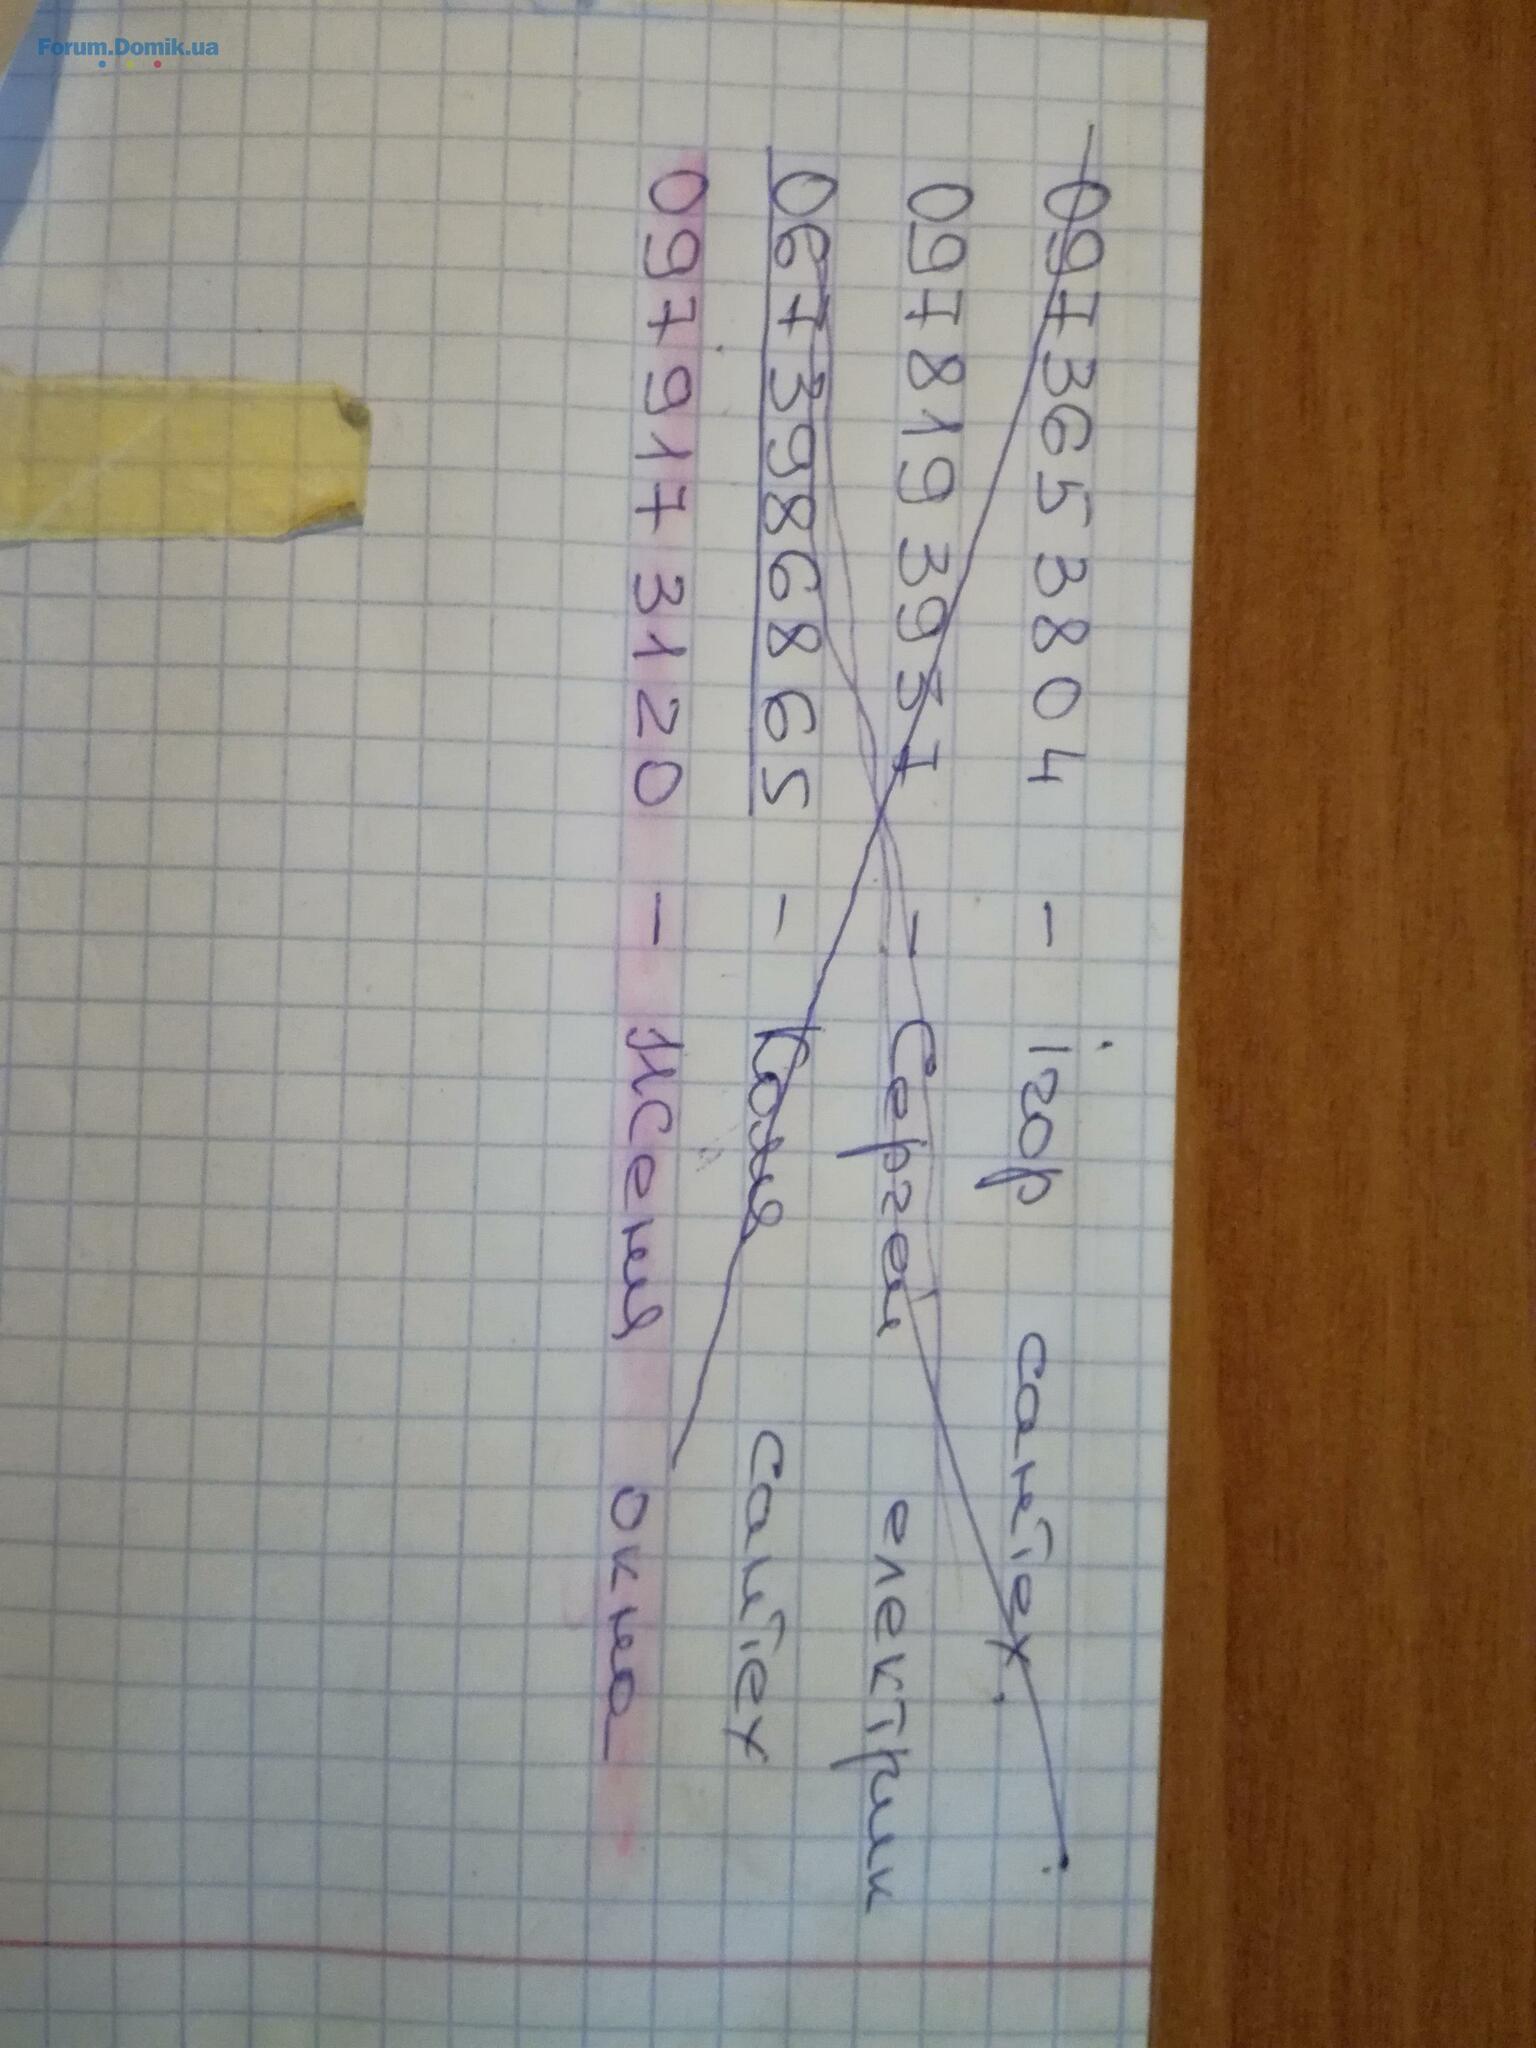 Forum.Domik.ua
0973653804 - ігор сантех.
0978193937 - Сергей електрик
0673986865 - Коля сантех
0979173120 - Женя окна